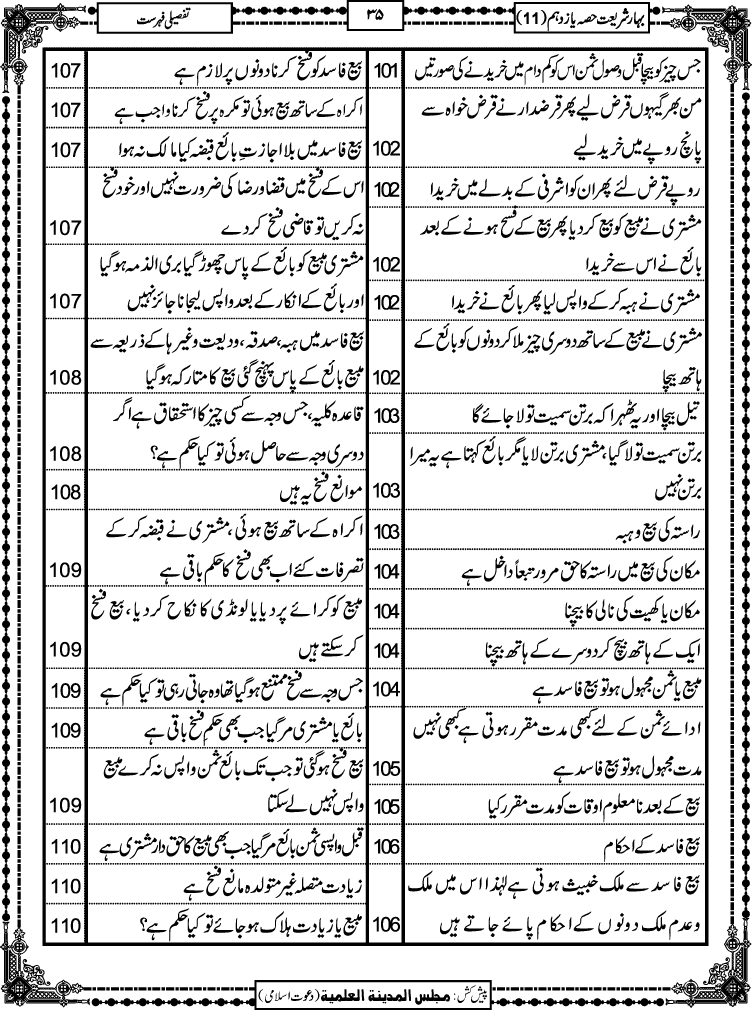 بہار شریعت حصہ یازدہم (11)
۳۵
تفصیلی فہرست
جس چیز کو بیچا قبل وصول ثمن اس کو کم دام میں خریدنے کی صورتیں 101
من بھر گیہوں قرض لیے پھر قرضدار نے قرض خواہ سے
پانچ روپے میں خرید لیے 102
روپے قرض لئے پھر ان کو اشرفی کے بدلے میں خریدا 102
مشتری نے مبیع کو بیع کر دیا پھر بیع کے فسخ ہونے کے بعد
بائع نے اس سے خریدا 102
مشتری نے ہبہ کر کے واپس لیا پھر بائع نے خریدا 102
مشتری نے مبیع کے ساتھ دوسری چیز ملا کر دونوں کو بائع کے
ہاتھ بیچا 102
تیل بیچا اور یہ ٹھہرا کہ برتن سمیت تولا جائے گا 103
برتن سمیت تولا گیا، مشتری برتن لایا مگر بائع کہتا ہے یہ میرا
برتن نہیں 103
راستہ کی بیع و ہبہ 103
مکان کی بیع میں راستہ کا حق مرور تبعاً داخل ہے 104
مکان یا کھیت کی نالی کا بیچنا 104
ایک کے ہاتھ بیچ کر دوسرے کے ہاتھ بیچنا 104
مبیع یا ثمن مجہول ہو تو بیع فاسد ہے 104
ادائے ثمن کے لئے کبھی مدت مقرر ہوتی ہے کبھی نہیں
مدت مجہول ہو تو بیع فاسد ہے 105
بیع کے بعد نامعلوم اوقات کو مدت مقرر کیا 105
بیع فاسد کے احکام 106
بیع فاسد سے ملک خبیث ہوتی ہے لہٰذا اس میں ملک
و عدم ملک دونوں کے احکام پائے جاتے ہیں 106
بیع فاسد کو فسخ کرنا دونوں پر لازم ہے 107
اکراہ کے ساتھ بیع ہوئی تو مکرہ پر فسخ کرنا واجب ہے 107
بیع فاسد میں بلا اجازتِ بائع قبضہ کیا مالک نہ ہوا 107
اس کے فسخ میں قضا و رضا کی ضرورت نہیں اور خود فسخ
نہ کریں تو قاضی فسخ کر دے 107
مشتری مبیع کو بائع کے پاس چھوڑ گیا بری الذمہ ہو گیا
اور بائع کے انکار کے بعد واپس لیجانا جائز نہیں 107
بیع فاسد میں ہبہ، صدقہ، ودیعت وغیرہا کے ذریعہ سے
مبیع بائع کے پاس پہنچ گئی بیع کا متارکہ ہو گیا 108
قاعدہ کلیہ، جس وجہ سے کسی چیز کا استحقاق ہے اگر
دوسری وجہ سے حاصل ہوئی تو کیا حکم ہے؟ 108
موانع فسخ یہ ہیں 108
اکراہ کے ساتھ بیع ہوئی، مشتری نے قبضہ کر کے
تصرفات کئے اب بھی فسخ کا حکم باقی ہے 109
مبیع کو کرائے پر دیا یا لونڈی کا نکاح کر دیا، بیع فسخ
کر سکتے ہیں 109
جس وجہ سے فسخ ممتنع ہو گیا تھا وہ جاتی رہی تو کیا حکم ہے 109
بائع یا مشتری مر گیا جب بھی حکمِ فسخ باقی ہے 109
بیع فسخ ہو گئی تو جب تک بائع ثمن واپس نہ کرے مبیع
واپس نہیں لے سکتا 109
قبل واپسی ثمن بائع مر گیا جب بھی مبیع کا حق دار مشتری ہے 110
زیادت متصلہ غیر متولدہ مانع فسخ ہے 110
مبیع یا زیادت ہلاک ہو جائے تو کیا حکم ہے؟ 110
پیش کش: مجلس المدينة العلمية (دعوت اسلامی)